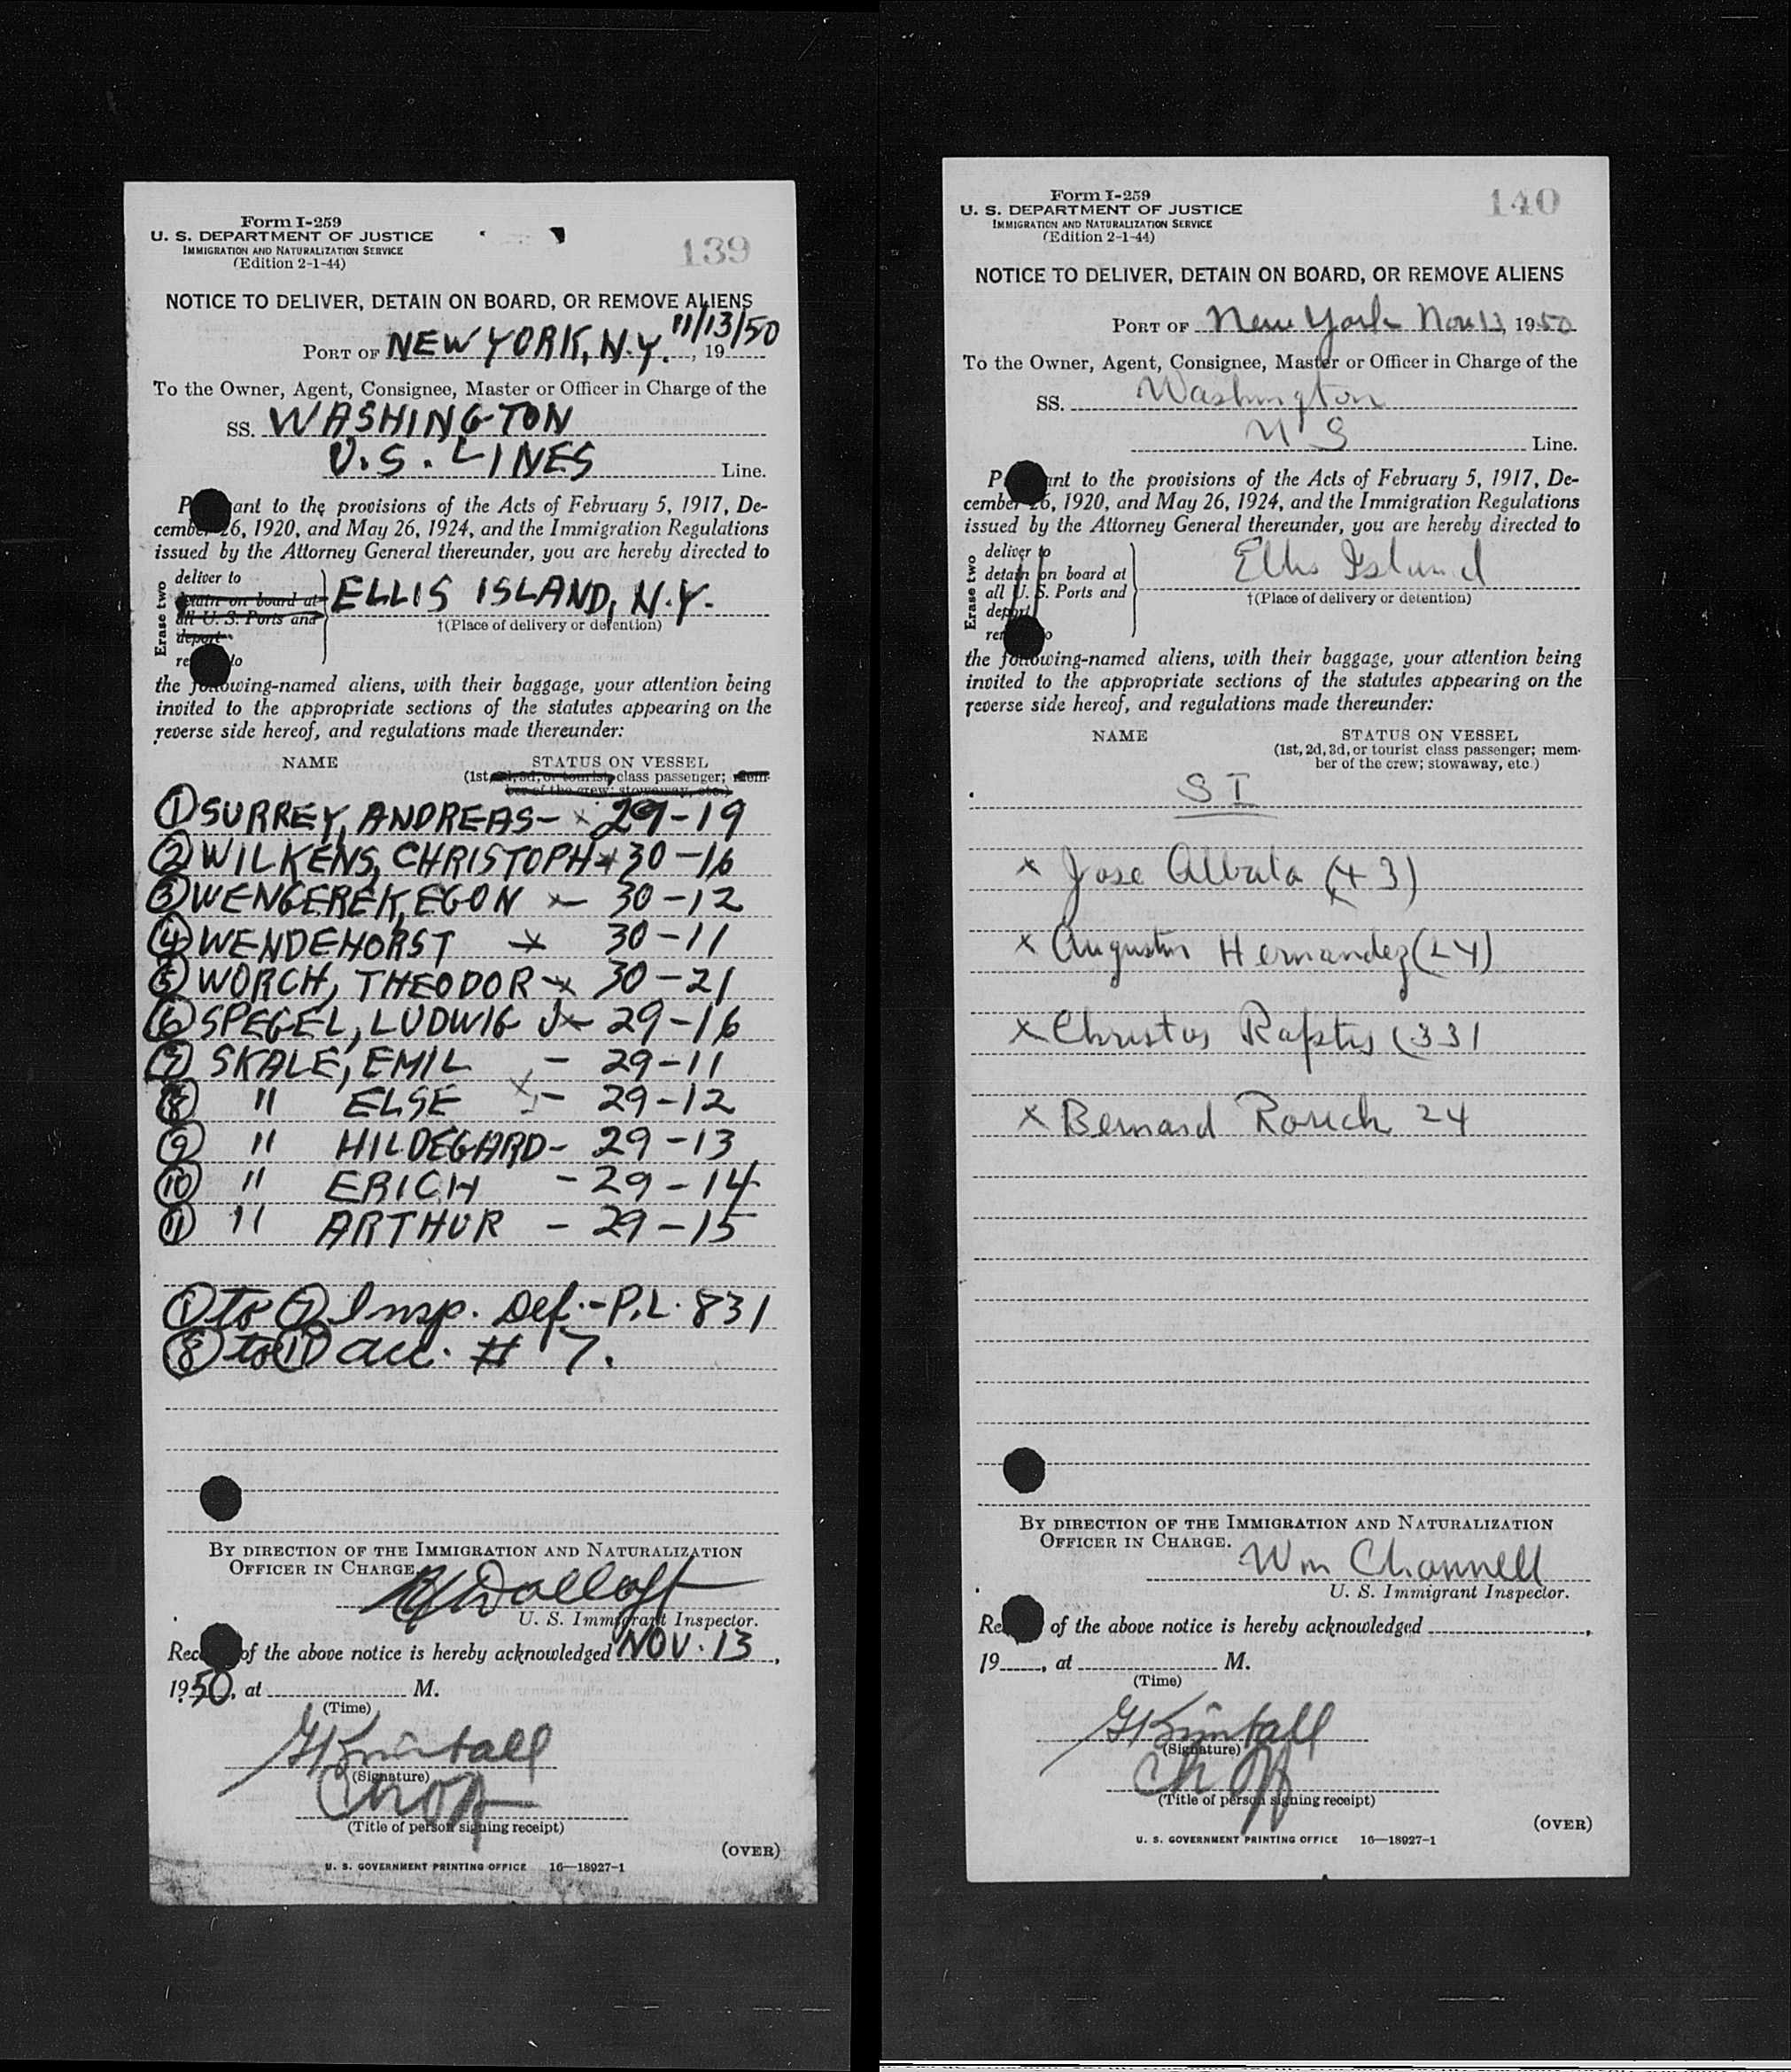 Form I-259
U. S. DEPARTMENT OF JUSTICE
IMMIGRATION AND NATURALIZATION SERVICE
(Edition 2-1-44)
139
NOTICE TO DELIVER, DETAIN ON BOARD, OR REMOVE ALIENS
PORT OF NEW YORK, N.Y. 11/13/50, 19
To the Owner, Agent, Consignee, Master or Officer in Charge of the
SS. WASHINGTON
U.S. LINES Line.
P ant to the provisions of the Acts of February 5, 1917, De-
cember 26, 1920, and May 26, 1924, and the Immigration Regulations
issued by the Attorney General thereunder, you are hereby directed to
Erase two
deliver to
detain on board at
all U. S. Ports and
deport
re to
ELLIS ISLAND, N.Y.
†(Place of delivery or detention)
the following-named aliens, with their baggage, your attention being
invited to the appropriate sections of the statutes appearing on the
reverse side hereof, and regulations made thereunder:
NAME STATUS ON VESSEL
(1st, 2d, 3d, or tourist class passenger; mem-
ber of the crew; stowaway, etc.)
① SURREY, ANDREAS - x 29-19
② WILKENS, CHRISTOPH x 30-16
③ WENGEREK, EGON x - 30-12
④ WENDEHORST x 30-11
⑤ WORCH, THEODOR - x 30-21
⑥ SPEGEL, LUDWIG x - 29-16
⑦ SKALE, EMIL - 29-11
⑧ " ELSE x - 29-12
⑨ " HILDEGARD - 29-13
⑩ " ERICH - 29-14
⑪ " ARTHUR - 29-15
① to ⑦ Insp. Def. - P.L. 831
⑧ to ⑪ acc. # 7.
BY DIRECTION OF THE IMMIGRATION AND NATURALIZATION
OFFICER IN CHARGE.
U. S. Immigrant Inspector.
Rec of the above notice is hereby acknowledged NOV. 13,
1950, at M.
(Time)
G Kimball
(Signature)
Ch Off
(Title of person signing receipt)
(OVER)
U. S. GOVERNMENT PRINTING OFFICE 16—18927-1
Form I-259
U. S. DEPARTMENT OF JUSTICE
IMMIGRATION AND NATURALIZATION SERVICE
(Edition 2-1-44)
140
NOTICE TO DELIVER, DETAIN ON BOARD, OR REMOVE ALIENS
PORT OF New York Nov 13, 1950
To the Owner, Agent, Consignee, Master or Officer in Charge of the
SS. Washington
U S Line.
P ant to the provisions of the Acts of February 5, 1917, De-
cember 26, 1920, and May 26, 1924, and the Immigration Regulations
issued by the Attorney General thereunder, you are hereby directed to
Erase two
deliver to
detain on board at
all U. S. Ports and
deport
re to
Ellis Island
†(Place of delivery or detention)
the following-named aliens, with their baggage, your attention being
invited to the appropriate sections of the statutes appearing on the
reverse side hereof, and regulations made thereunder:
NAME STATUS ON VESSEL
(1st, 2d, 3d, or tourist class passenger; mem-
ber of the crew; stowaway, etc.)
S I
x Jose (43)
x Augustin Hernandez (24)
x Christos Raptis (33)
x Bernard 24
BY DIRECTION OF THE IMMIGRATION AND NATURALIZATION
OFFICER IN CHARGE.
Wm Channell
U. S. Immigrant Inspector.
Re of the above notice is hereby acknowledged ,
19 , at M.
(Time)
G Kimball
(Signature)
Ch Off
(Title of person signing receipt)
(OVER)
U. S. GOVERNMENT PRINTING OFFICE 16—18927-1